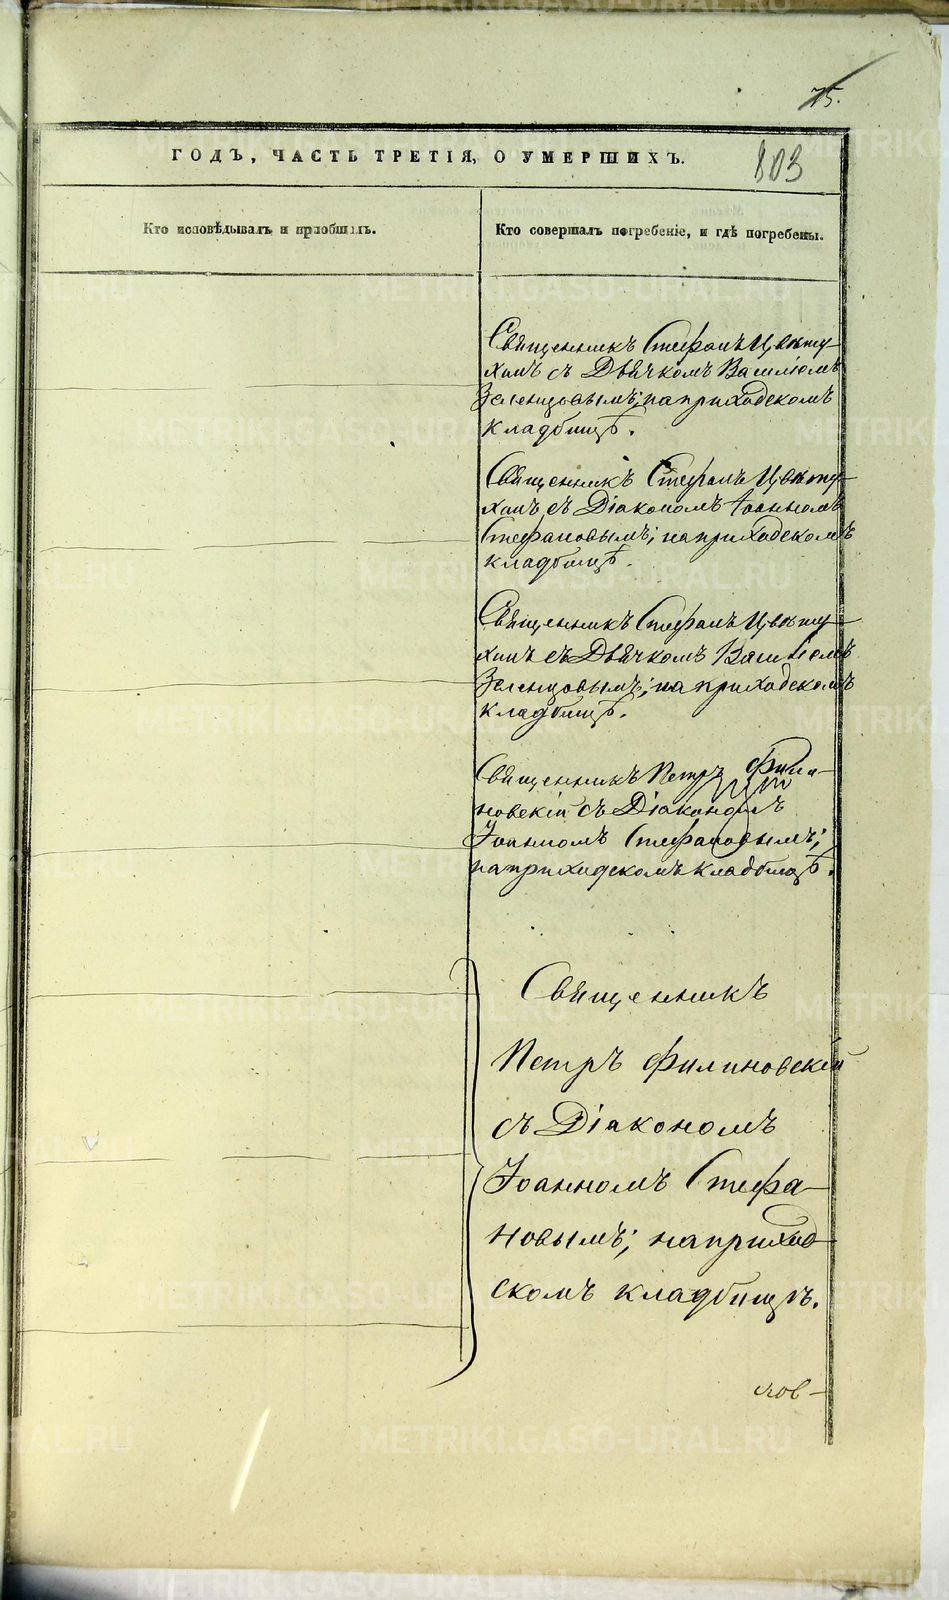 75.
ГОДЪ, ЧАСТЬ ТРЕТІЯ, О УМЕРШИХЪ.
803
Кто исповѣдывалъ и пріобщалъ.
Кто совершалъ погребеніе, и гдѣ погребены.
Священникъ Стефанъ Цвѣту-
хинъ съ Дьячкомъ Василіемъ
Зеленцовымъ; на приходскомъ
кладбищѣ.
Священникъ Стефанъ Цвѣту-
хинъ съ Діакономъ Іоанномъ
Стефановымъ; на приходскомъ
кладбищѣ.
Священникъ Стефанъ Цвѣту-
хинъ съ Дьячкомъ Василіемъ
Зеленцовымъ; на приходскомъ
кладбищѣ.
Священникъ Петръ Фили-
новскій съ Діакономъ
Іоанномъ Стефановымъ;
на приходскомъ кладбищѣ.
Священникъ
Петръ Филиновскій
съ Діакономъ
Іоанномъ Стефа-
новымъ; на приход-
скомъ кладбищѣ.
METRIKI.GASO-URAL.RU